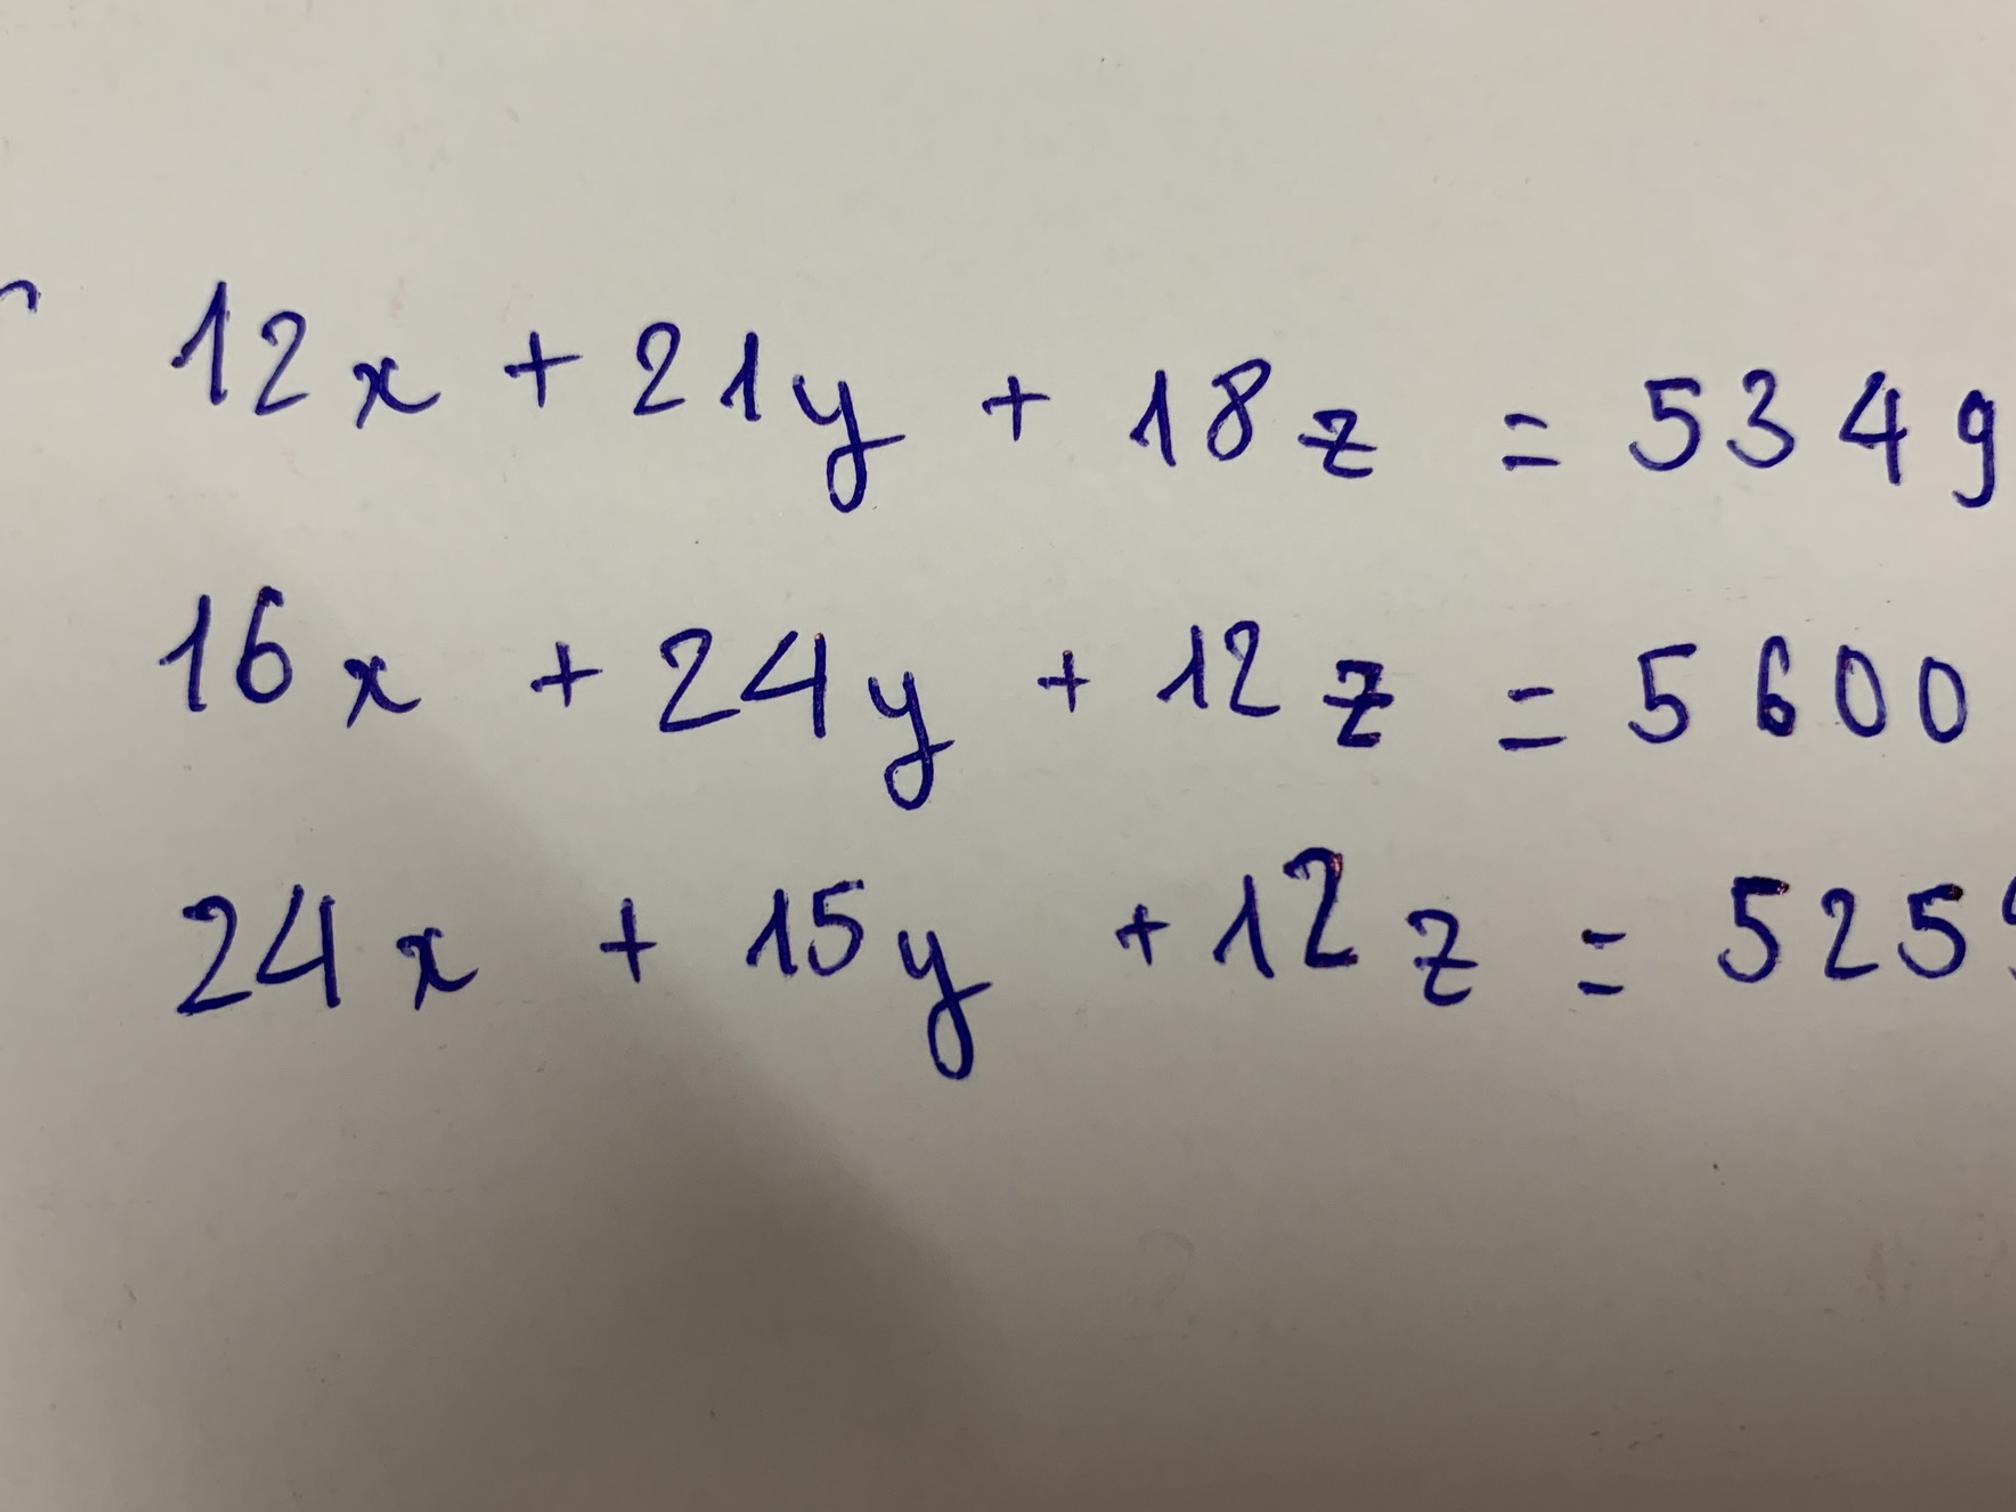 12x + 21y + 18z = 5349
16x + 24y + 12z = 5600
24x + 15y + 12z = 525